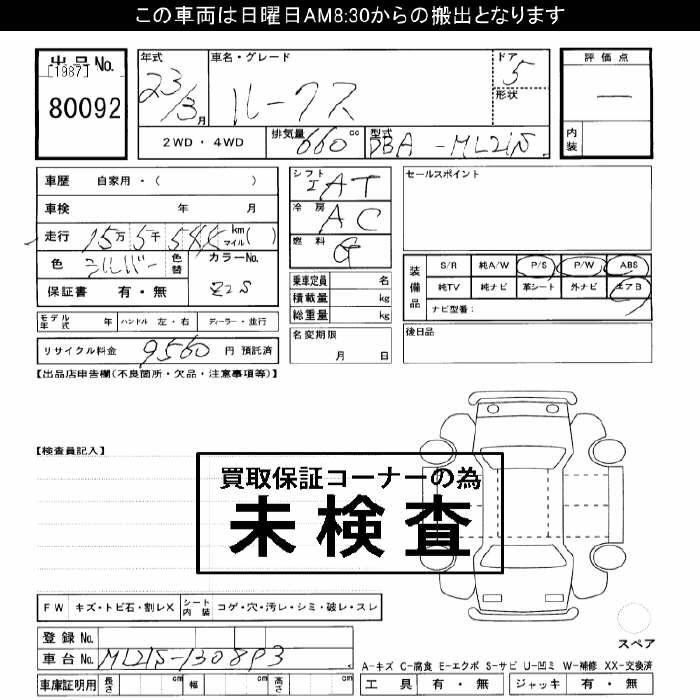 この車両は日曜日AM8:30からの搬出となります
出品No.
[1987]
80092
年式 23/3月
車名・グレード ルークス
ドア 5
形状
2WD・4WD 排気量 660 cc 型式 DBA-ML21S
評価点
—
内装
車歴 自家用・( )
車検 年 月
走行 15万 5千 km マイル( )
色 シルバー 色替 カラーNo. Z2S
保証書 有・無
シフト IAT
冷房 AC
燃料 G
乗車定員 名
積載量 kg
総重量 kg
セールスポイント
装備品
S/R 純A/W P/S P/W ABS
純TV 純ナビ 革シート 外ナビ エアB
ナビ型番:
モデル年式 年 ハンドル 左・右 ディーラー・並行
名変期限
月 日
後日品
リサイクル料金 9560 円 預託済
【出品店申告欄(不良箇所・欠品・注意事項等)】
【検査員記入】
買取保証コーナーの為
未検査
FW キズ・トビ石・割レX シート内装 コゲ・穴・汚レ・シミ・破レ・スレ
スペア
登録No.
車台No. ML21S-130893
A-キズ C-腐食 E-エクボ S-サビ U-凹ミ W-補修 XX-交換済
車庫証明用 長さ cm 幅 cm 高さ cm
工具 有・無 ジャッキ 有・無